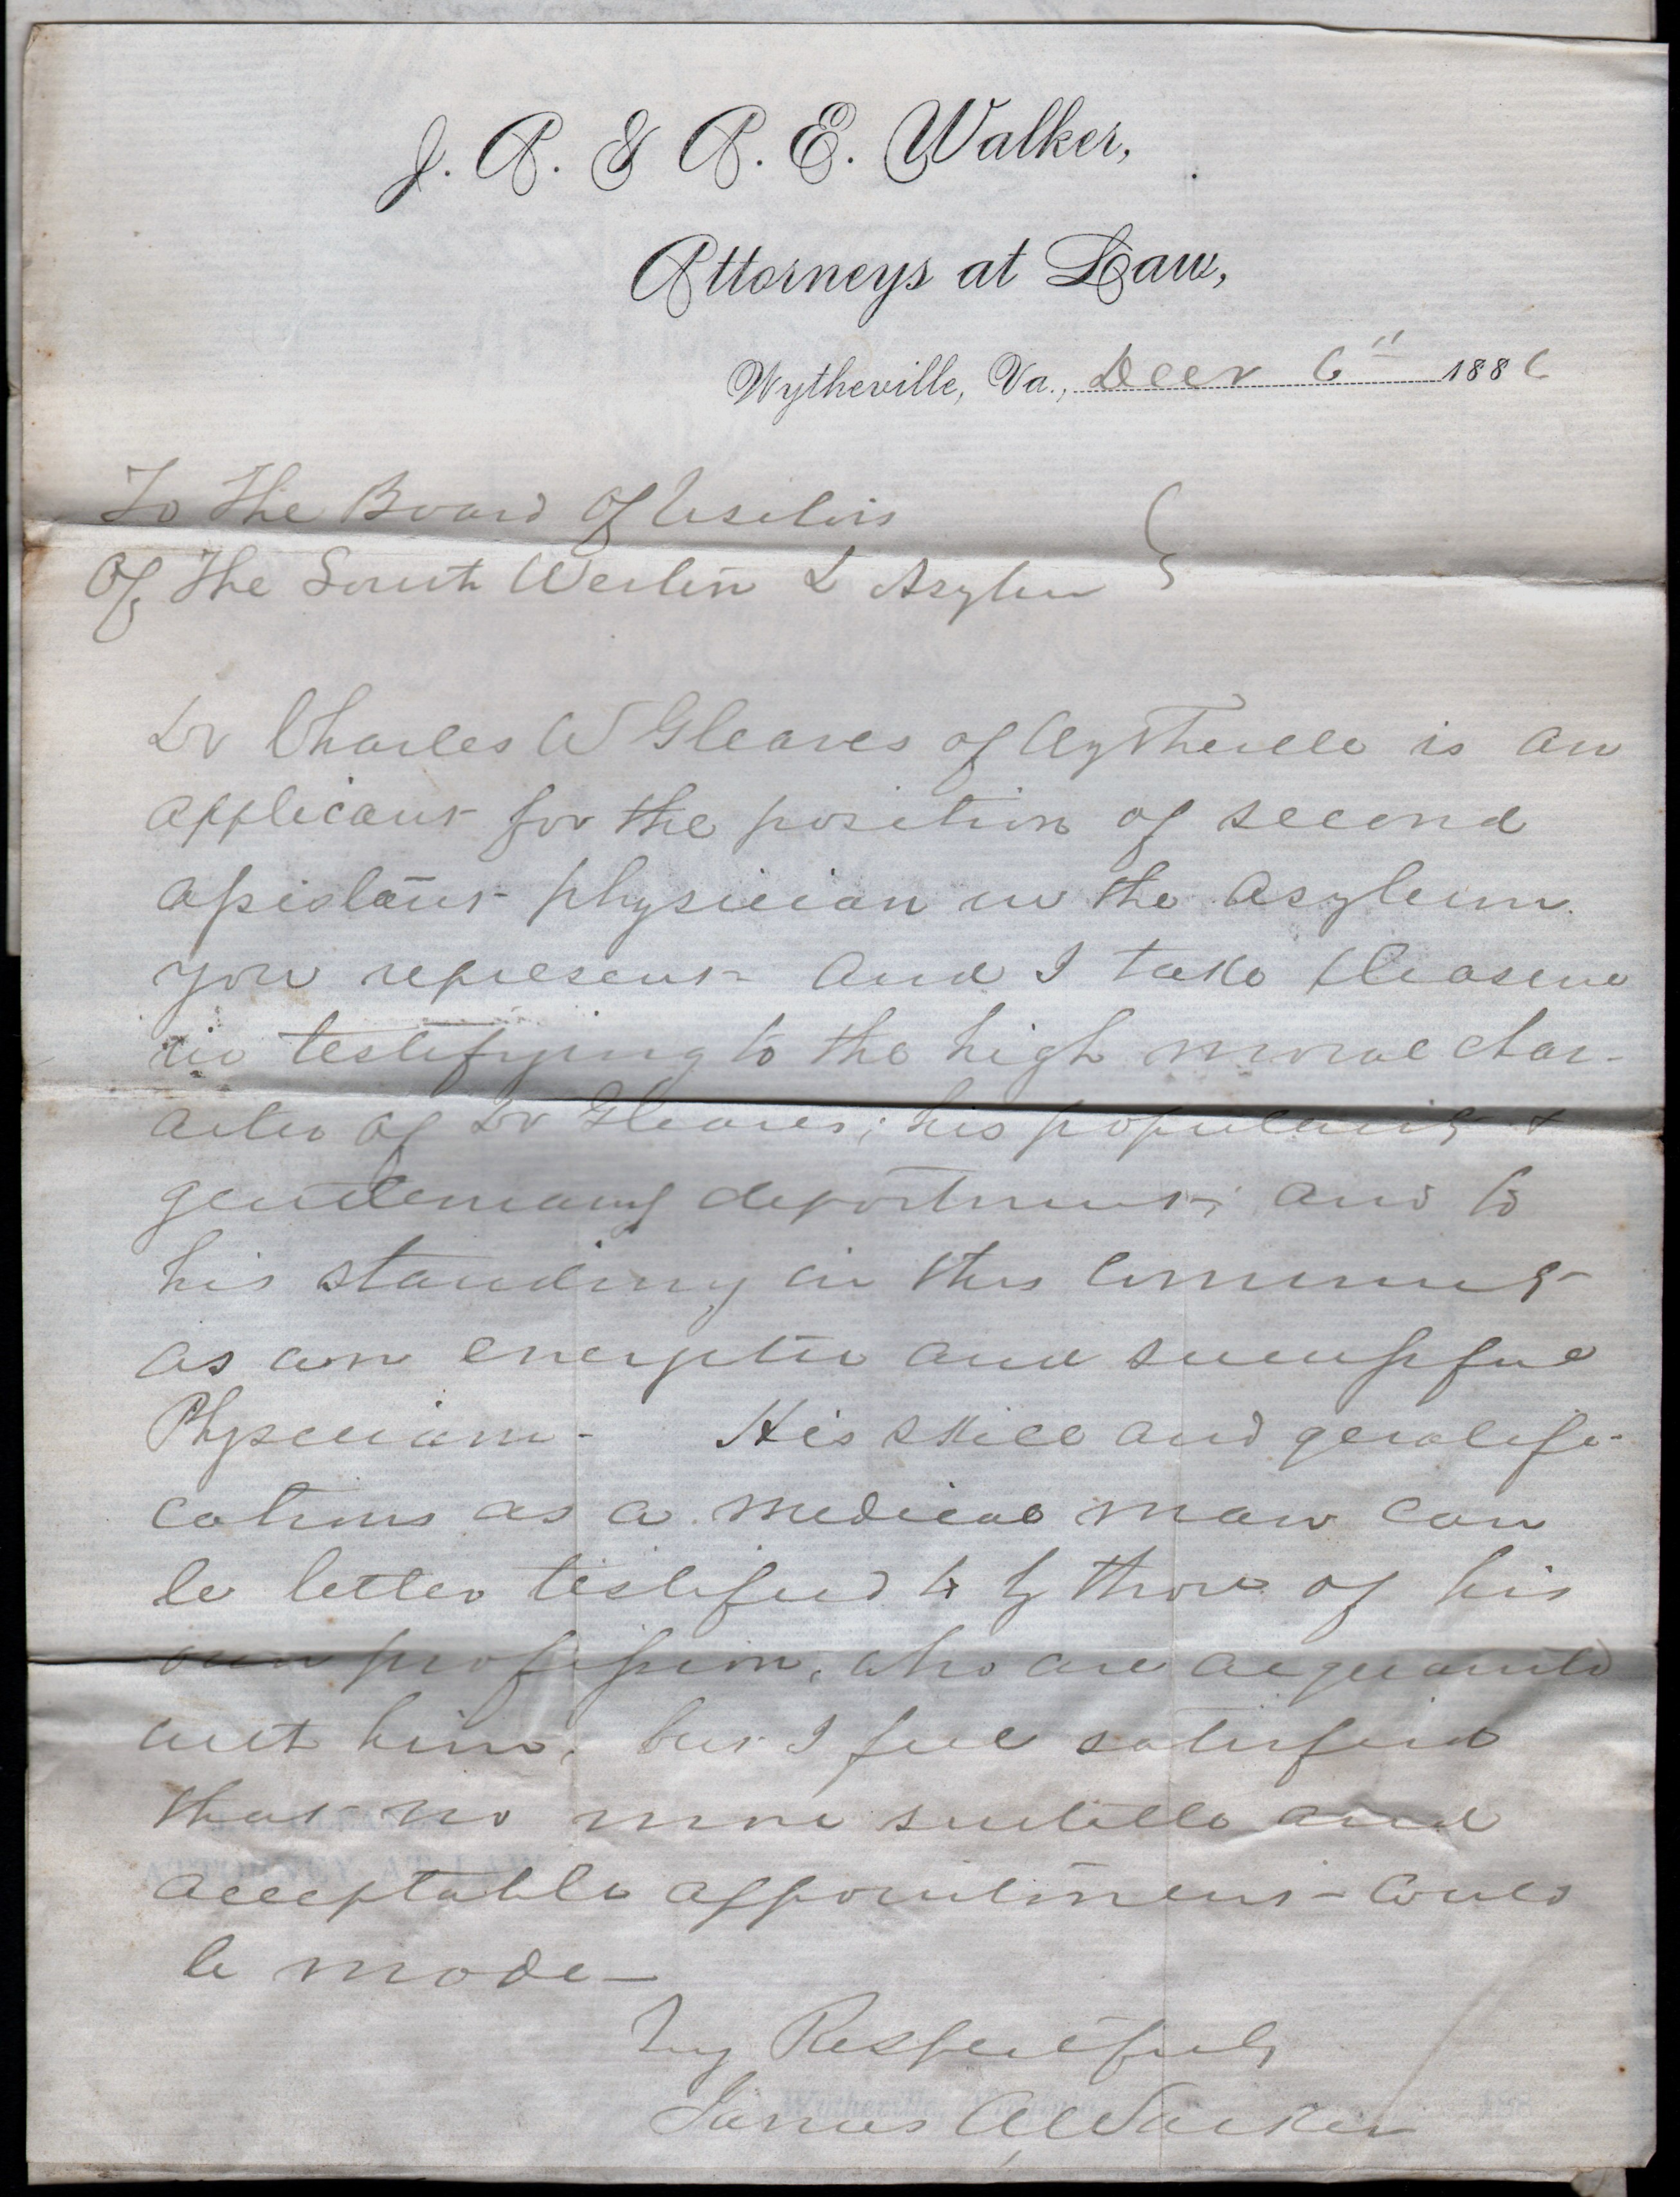 J. A. & A. E. Walker,
Attorneys at Law,
Wytheville, Va., Decr 6" 1886
To The Board of Visitors
Of The South Western L Asylum
Dr Charles W Gleaves of Wytheville is an
applicant for the position of second
assistant physician in the Asylum
you represent and I take pleasure
in testifying to the high moral char-
acter of Dr Gleaves; his popularity &
gentlemanly deportment; and to
his standing in this community
as an energetic and successful
Physician - His skill and qualifi-
cations as a medical man can
be better testified to by those of his
own profession, who are acquainted
with him, but I feel satisfied
that no more suitable and
acceptable appointment could
be made -
Very Respectfully
James A Walker